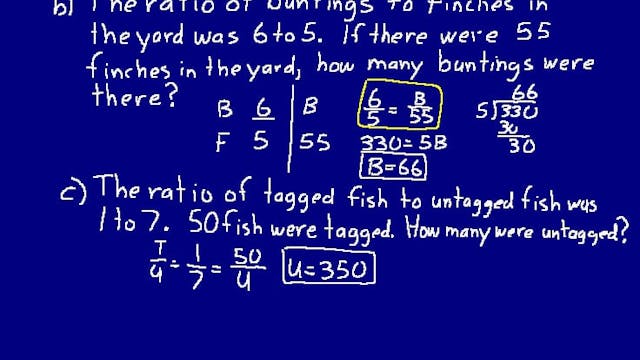 b) The ratio of buntings to finches in
the yard was 6 to 5. If there were 55
finches in the yard, how many buntings were
there?
B 6 | B
F 5 | 55
6/5 = B/55
330 = 5B
B=66
66
5)330
30
30
c) The ratio of tagged fish to untagged fish was
1 to 7. 50 fish were tagged. How many were untagged?
T/u = 1/7 = 50/u u=350